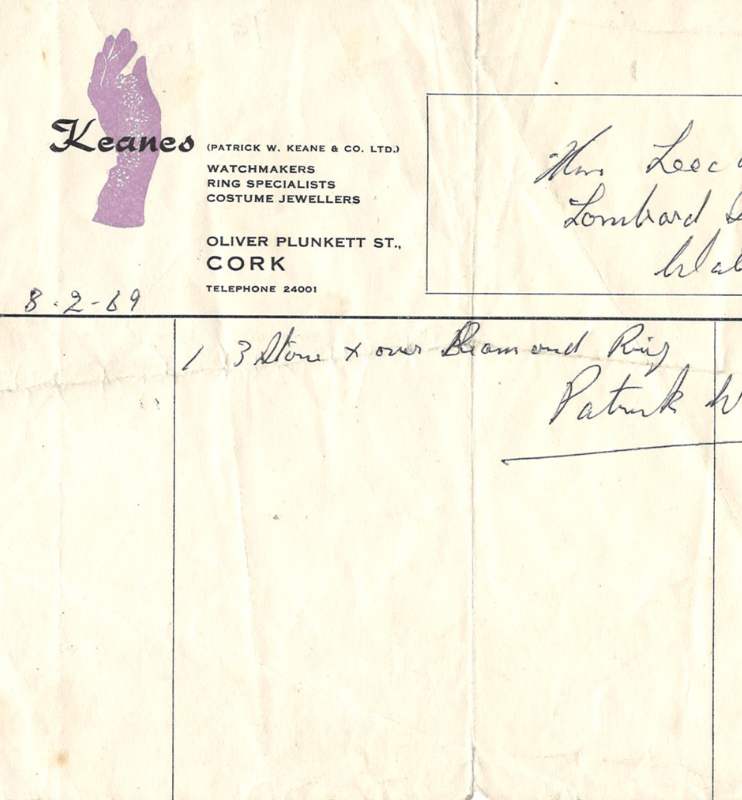 Keanes (PATRICK W. KEANE & CO. LTD.)
WATCHMAKERS
RING SPECIALISTS
COSTUME JEWELLERS
OLIVER PLUNKETT ST.,
CORK
TELEPHONE 24001
Lombard
8-2-69
1 3 Stone x over Diamond Ring
Patrick W